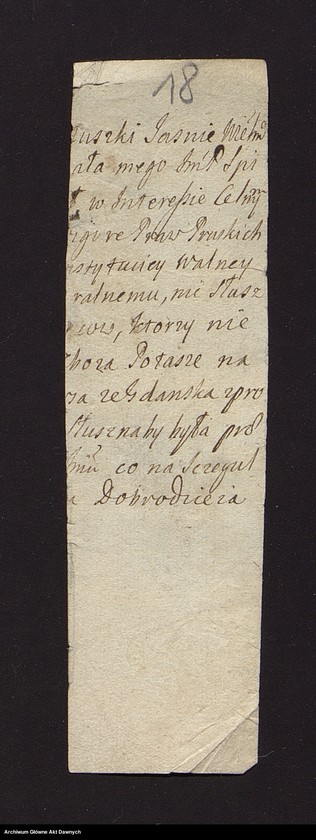 18
tuszki Jasnie Wielm
ata mego Imć P Spi
w Interessie Celny
vigore Praw Pruskich
nstytucyey Walney
ralnemu, nie Słusz
ktorzy nie
boza Potasze na
za ze Gdanska spro
Słusznaby była
co na Szczegul
a Dobrodzieia
Archiwum Główne Akt Dawnych